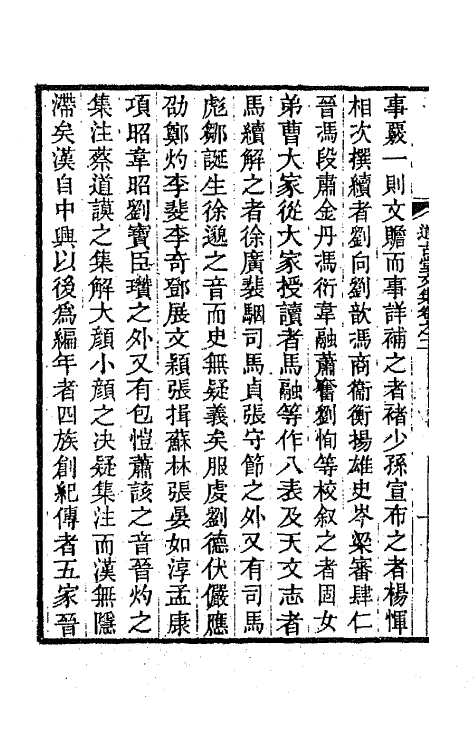 事覈一則文贍而事詳補之者褚少孫宣布之者楊惲
相次撰續者劉向劉歆馮商衞衡揚雄史岑梁審肆仁
晉馮段肅金丹馮衍韋融蕭奮劉恂等校叙之者固女
弟曹大家從大家授讀者馬融等作八表及天文志者
馬續解之者徐廣裴駰司馬貞張守節之外又有司馬
彪鄒誕生徐邈之音而史無疑義矣服虔劉德伏儼應
劭鄭灼李斐李奇鄧展文穎張揖蘇林張晏如淳孟康
項昭韋昭劉寶臣瓚之外又有包愷蕭該之音晉灼之
集注蔡道謨之集解大顔小顔之決疑集注而漢無隱
滯矣漢自中興以後爲編年者四族創紀傳者五家晉